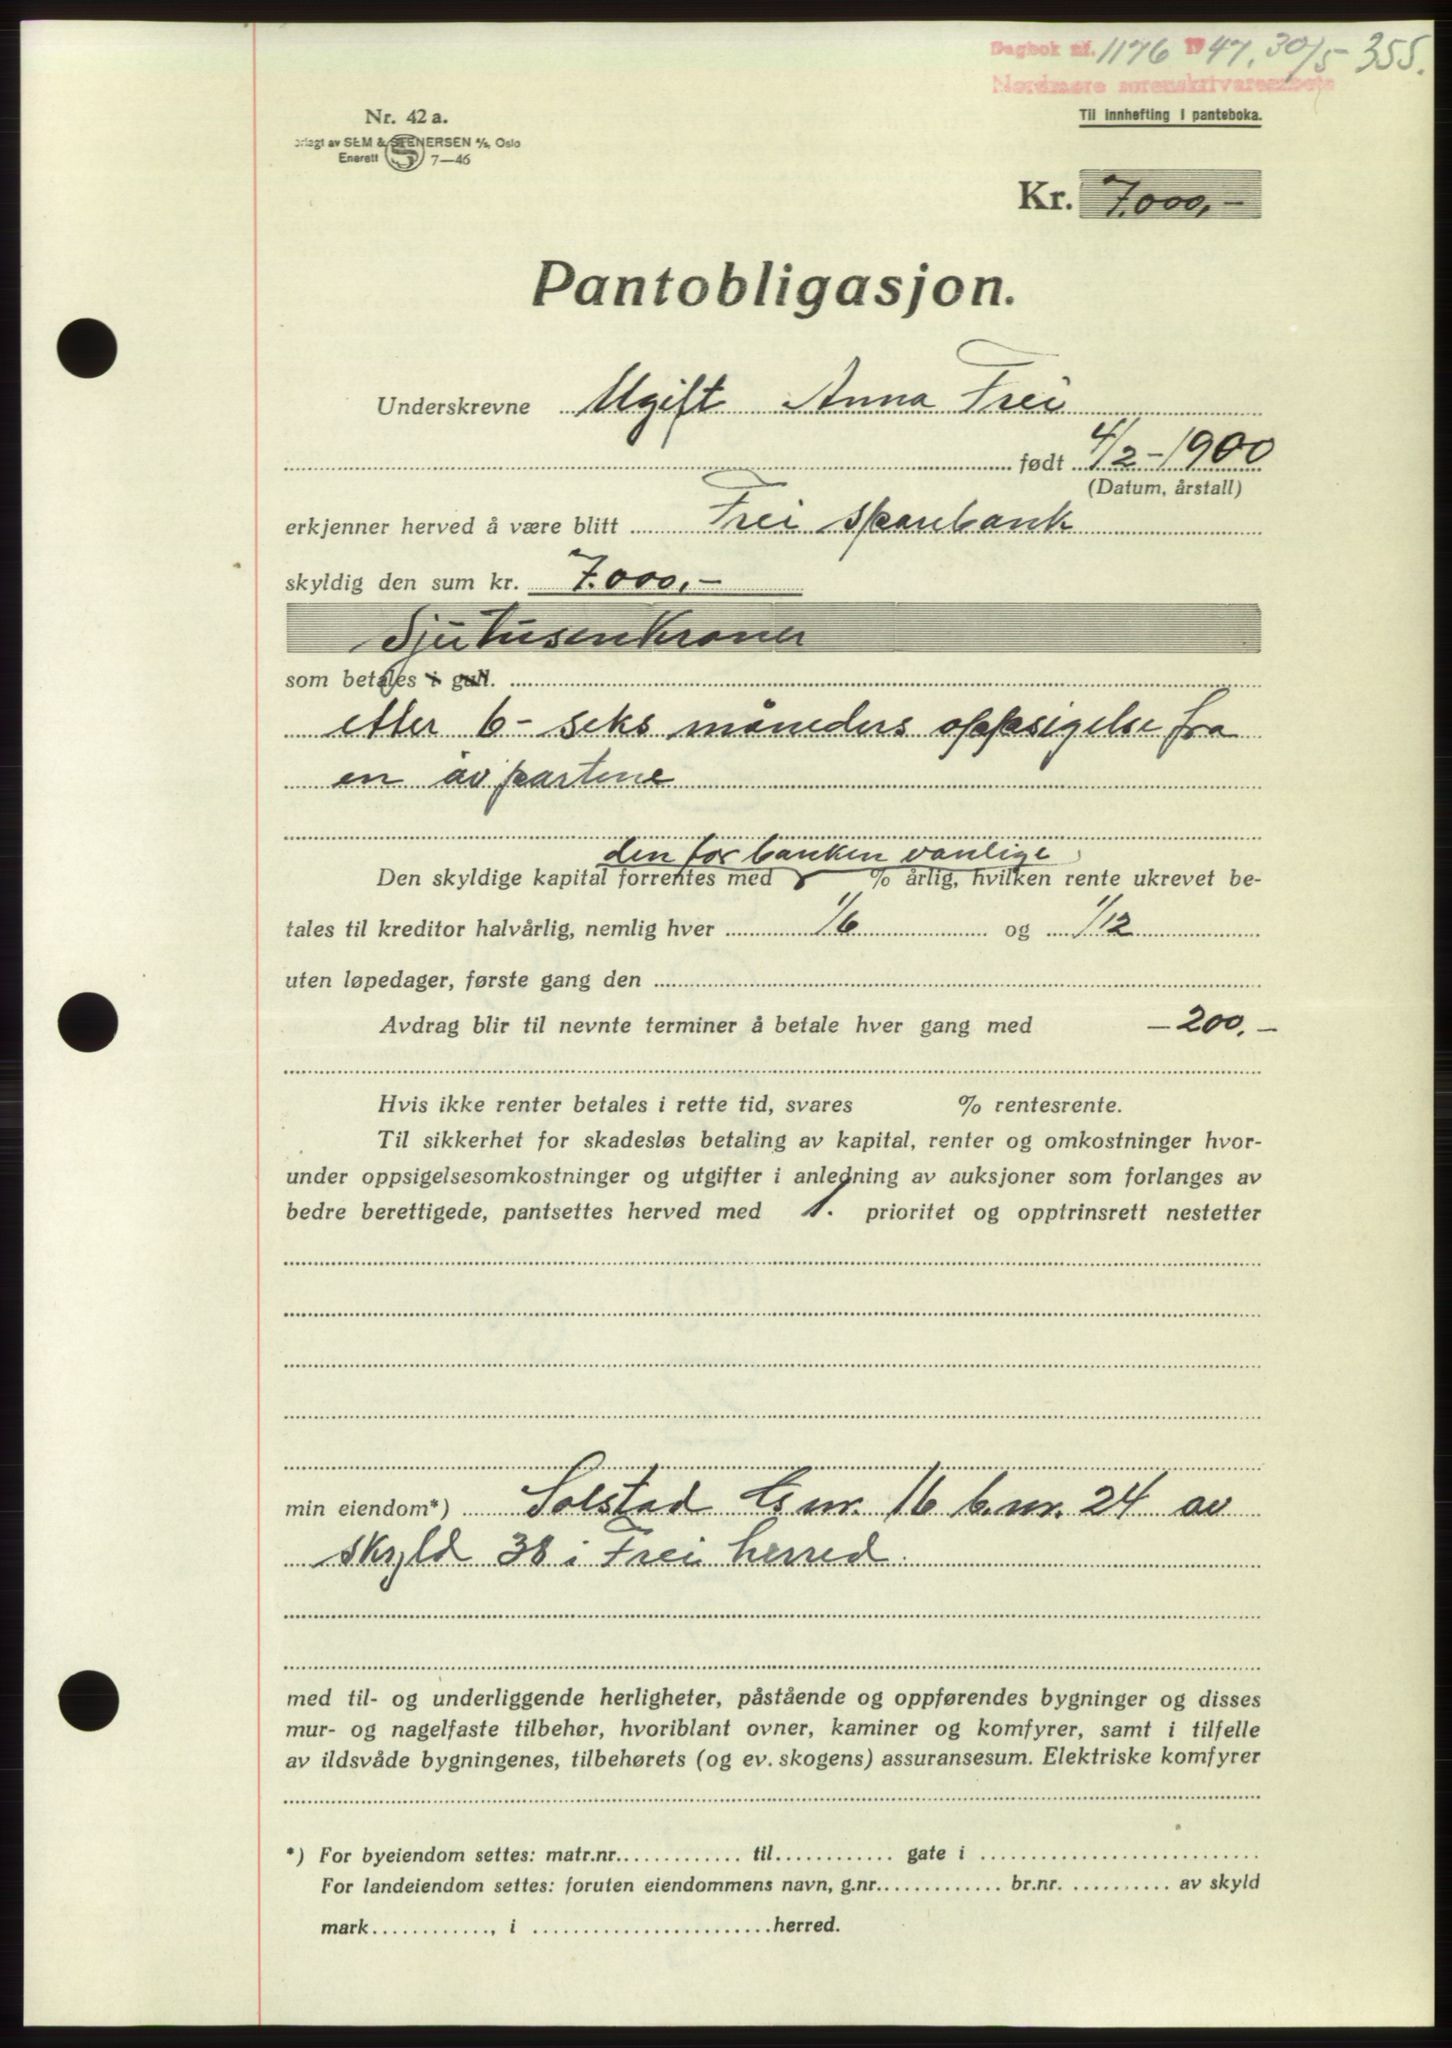 Dagbok nr. 1176 1947, 30/5 - 355.
Nordmøre sorenskrivarembete
Nr. 42 a.
Til innhefting i panteboka.
orlagt av SEM & STENERSEN A/S, Oslo
Enerett 7—46
Kr. 7.000,-
Pantobligasjon.
Underskrevne Ugift Anna Frei
født 4/2 - 1900
(Datum, årstall)
erkjenner herved å være blitt Frei sparebank
skyldig den sum kr. 7.000,-
Sjutusenkroner
som betales i gull.
etter 6 - seks måneders oppsigelse fra
en av partene
den for banken vanlige
Den skyldige kapital forrentes med % årlig, hvilken rente ukrevet be-
tales til kreditor halvårlig, nemlig hver 1/6 og 1/12
uten løpedager, første gang den
Avdrag blir til nevnte terminer å betale hver gang med - 200.-
Hvis ikke renter betales i rette tid, svares % rentesrente.
Til sikkerhet for skadesløs betaling av kapital, renter og omkostninger hvor-
under oppsigelsesomkostninger og utgifter i anledning av auksjoner som forlanges av
bedre berettigede, pantsettes herved med 1. prioritet og opptrinsrett nestetter
min eiendom*) Solstad G.nr. 16 b.nr. 24 av
skyld 38 i Frei herred.
med til- og underliggende herligheter, påstående og oppførendes bygninger og disses
mur- og nagelfaste tilbehør, hvoriblant ovner, kaminer og komfyrer, samt i tilfelle
av ildsvåde bygningenes, tilbehørets (og ev. skogens) assuransesum. Elektriske komfyrer
*) For byeiendom settes: matr.nr. til gate i
For landeiendom settes: foruten eiendommens navn, g.nr. br.nr. av skyld
mark , i herred.